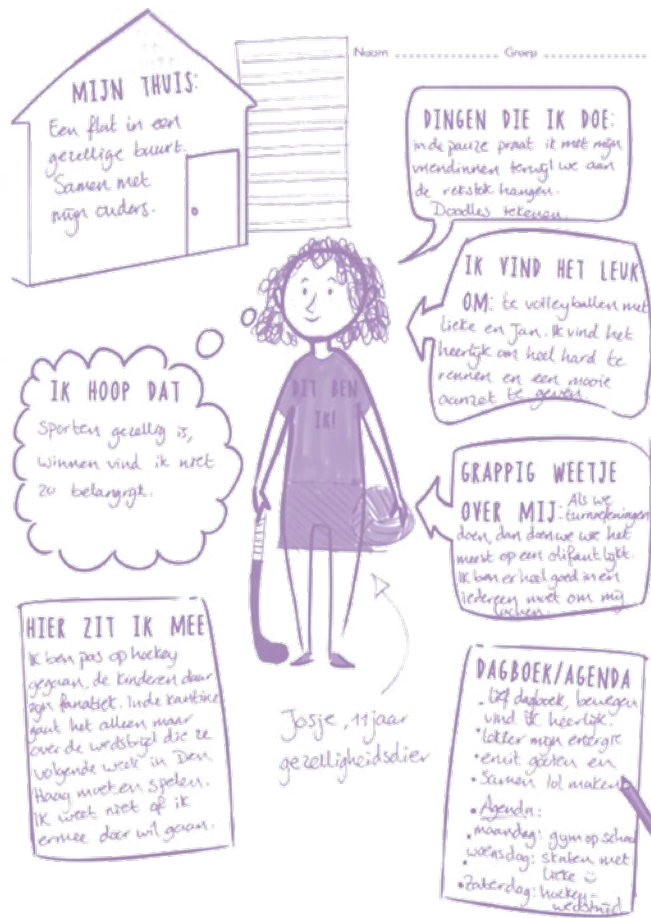 Naam Groep
MIJN THUIS:
Een flat in een
gezellige buurt.
Samen met
mijn ouders.
DINGEN DIE IK DOE:
in de pauze praat ik met mijn
vriendinnen terwijl we aan
de rekstok hangen.
Doodles tekenen.
IK VIND HET LEUK
OM: te volleyballen met
Lieke en Jan. Ik vind het
heerlijk om heel hard te
rennen en een mooie
aanzet te geven.
IK HOOP DAT
Sporten gezellig is,
winnen vind ik niet
zo belangrijk.
DIT BEN
IK!
GRAPPIG WEETJE
OVER MIJ: Als we
turnoefeningen
doen, dan doen we wie het
meest op een olifant lijkt.
Ik ben er heel goed in en
iedereen moet om mij
lachen.
HIER ZIT IK MEE
Ik ben pas op hockey
gegaan, de kinderen daar
zijn fanatiek. In de kantine
gaat het alleen maar
over de wedstrijd die ze
volgende week in Den
Haag moeten spelen.
Ik weet niet of ik
ermee door wil gaan.
Josje, 11 jaar
gezelligheidsdier
DAGBOEK/AGENDA
• dagboek, bewegen
vind ik heerlijk.
• lekker mijn energie
• eruit gooien en
• Samen lol maken
• Agenda:
• maandag: gym op school
woensdag: skaten met
• Lieke ☺
• Zaterdag: hockey-
wedstrijd